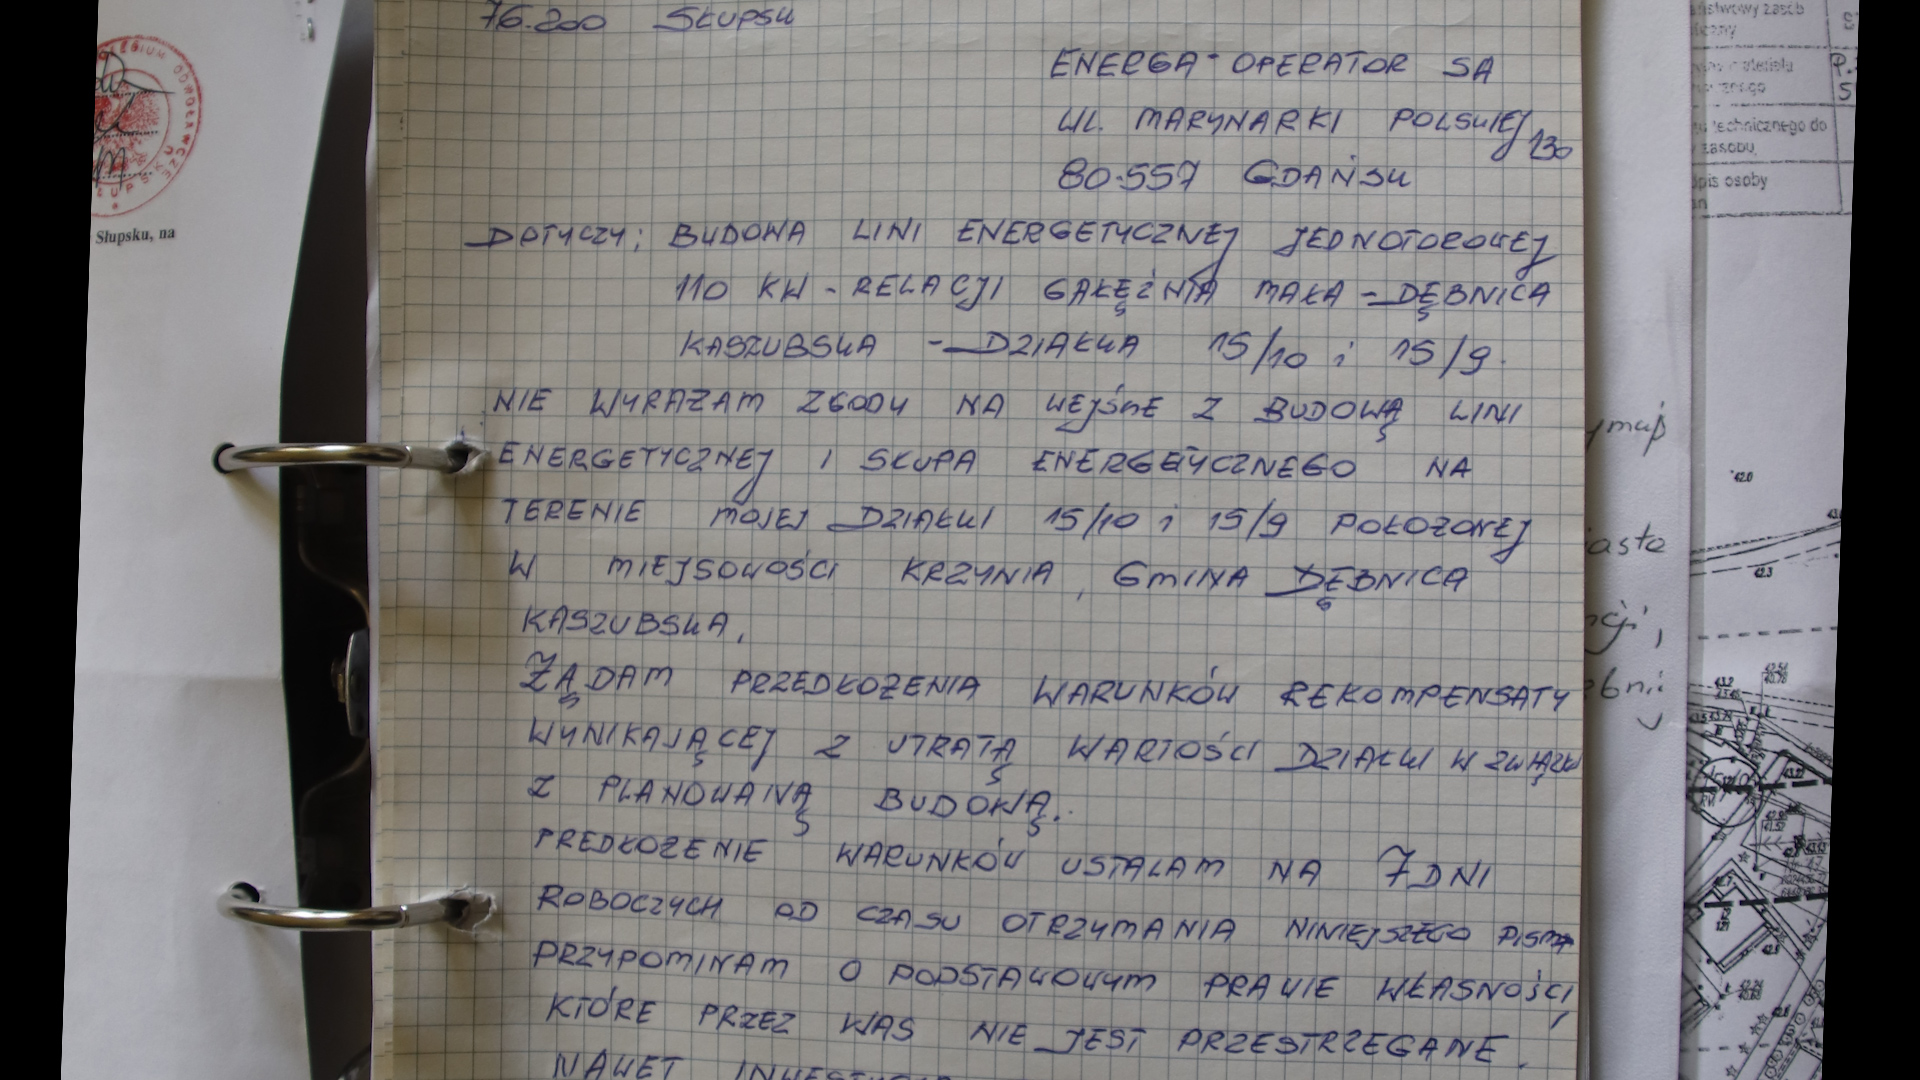 76.200 SŁUPSK
ENERGA-OPERATOR SA
UL. MARYNARKI POLSKIEJ 130
80-557 GDAŃSK
DOTYCZY: BUDOWA LINI ENERGETYCZNEJ JEDNOTOROWEJ
110 KW - RELACJI GAŁĘŹNIA MAŁA - DĘBNICA
KASZUBSKA - DZIAŁKA 15/10 i 15/9.
NIE WYRAŻAM ZGODY NA WEJŚCIE Z BUDOWĄ LINI
ENERGETYCZNEJ I SŁUPA ENERGETYCZNEGO NA
TERENIE MOJEJ DZIAŁKI 15/10 i 15/9 POŁOŻONEJ
W MIEJSOWOŚCI KRZYNIA, GMINA DĘBNICA
KASZUBSKA.
ŻĄDAM PRZEDŁOŻENIA WARUNKÓW REKOMPENSATY
WYNIKAJĄCEJ Z UTRATĄ WARTOŚCI DZIAŁKI W ZWIĄZKU
Z PLANOWANĄ BUDOWĄ.
PREDŁOŻENIE WARUNKÓW USTALAM NA 7 DNI
ROBOCZYCH OD CZASU OTRZYMANIA NINIEJSZEGO PISMA
PRZYPOMINAM O PODSTAWOWYM PRAWIE WŁASNOŚCI,
KTÓRE PRZEZ WAS NIE JEST PRZESTRZEGANE.
NAWET
Słupsku, na
technicznego do
zasobu
osoby
42.0
42.3